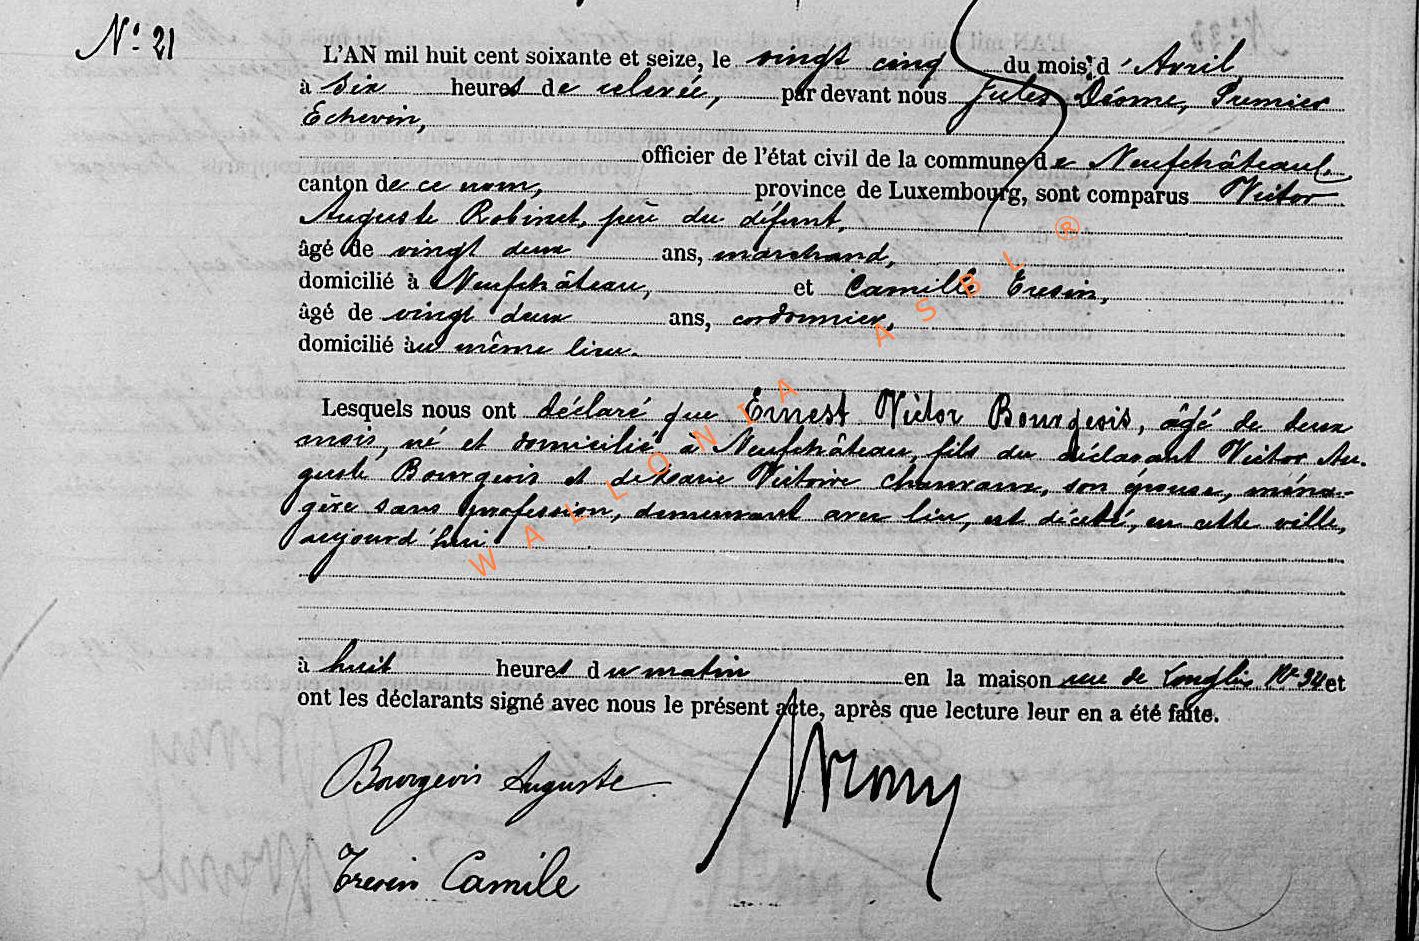 N° 21
L'AN mil huit cent soixante et seize, le vingt cinq du mois d'Avril
à six heures de relevée, par devant nous Jules Déome, Premier
Echevin,
officier de l'état civil de la commune de Neufchâteau,
canton de ce nom, province de Luxembourg, sont comparus Victor
Auguste Robinet, père du défunt,
âgé de vingt deux ans, marchand,
domicilié à Neufchâteau, et Camille Tresin,
âgé de vingt deux ans, cordonnier,
domicilié au même lieu.
Lesquels nous ont déclaré que Ernest Victor Bourgeois, âgé de deux
mois, né et domicilié à Neufchâteau, fils du déclarant Victor Au-
guste Bourgeois et de Marie Victoire Chauvaux, son épouse, ména-
gère sans profession, demeurant avec lui, est décédé, en cette ville,
aujourd'hui
à huit heures du matin en la maison rue de Longlier N° 34 et
ont les déclarants signé avec nous le présent acte, après que lecture leur en a été faite.
Bourgeois Auguste
Tresin Camile
WALLONIA ASBL ®